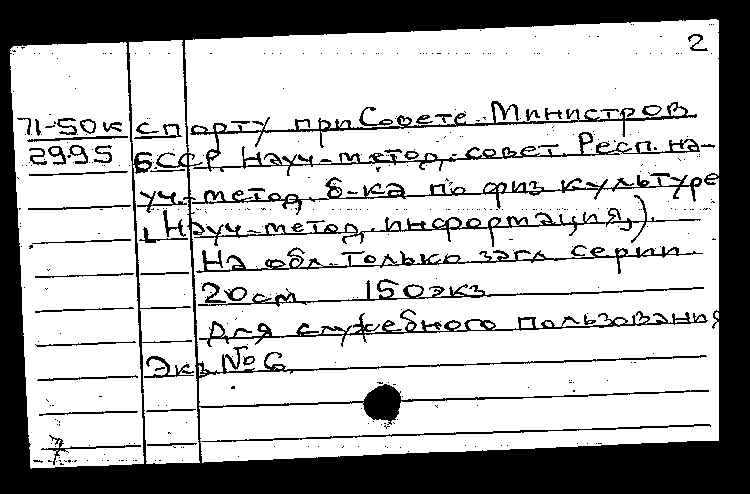 2
71-50к спорту при Совете Министров
2995 БССР. Науч.-метод. совет. Респ. на-
уч.-метод. б-ка по физ культуре
[Науч.-метод. информация,).
На обл. только загл серии
20см 150экз
Для служебного пользования
Экз. № 6
7